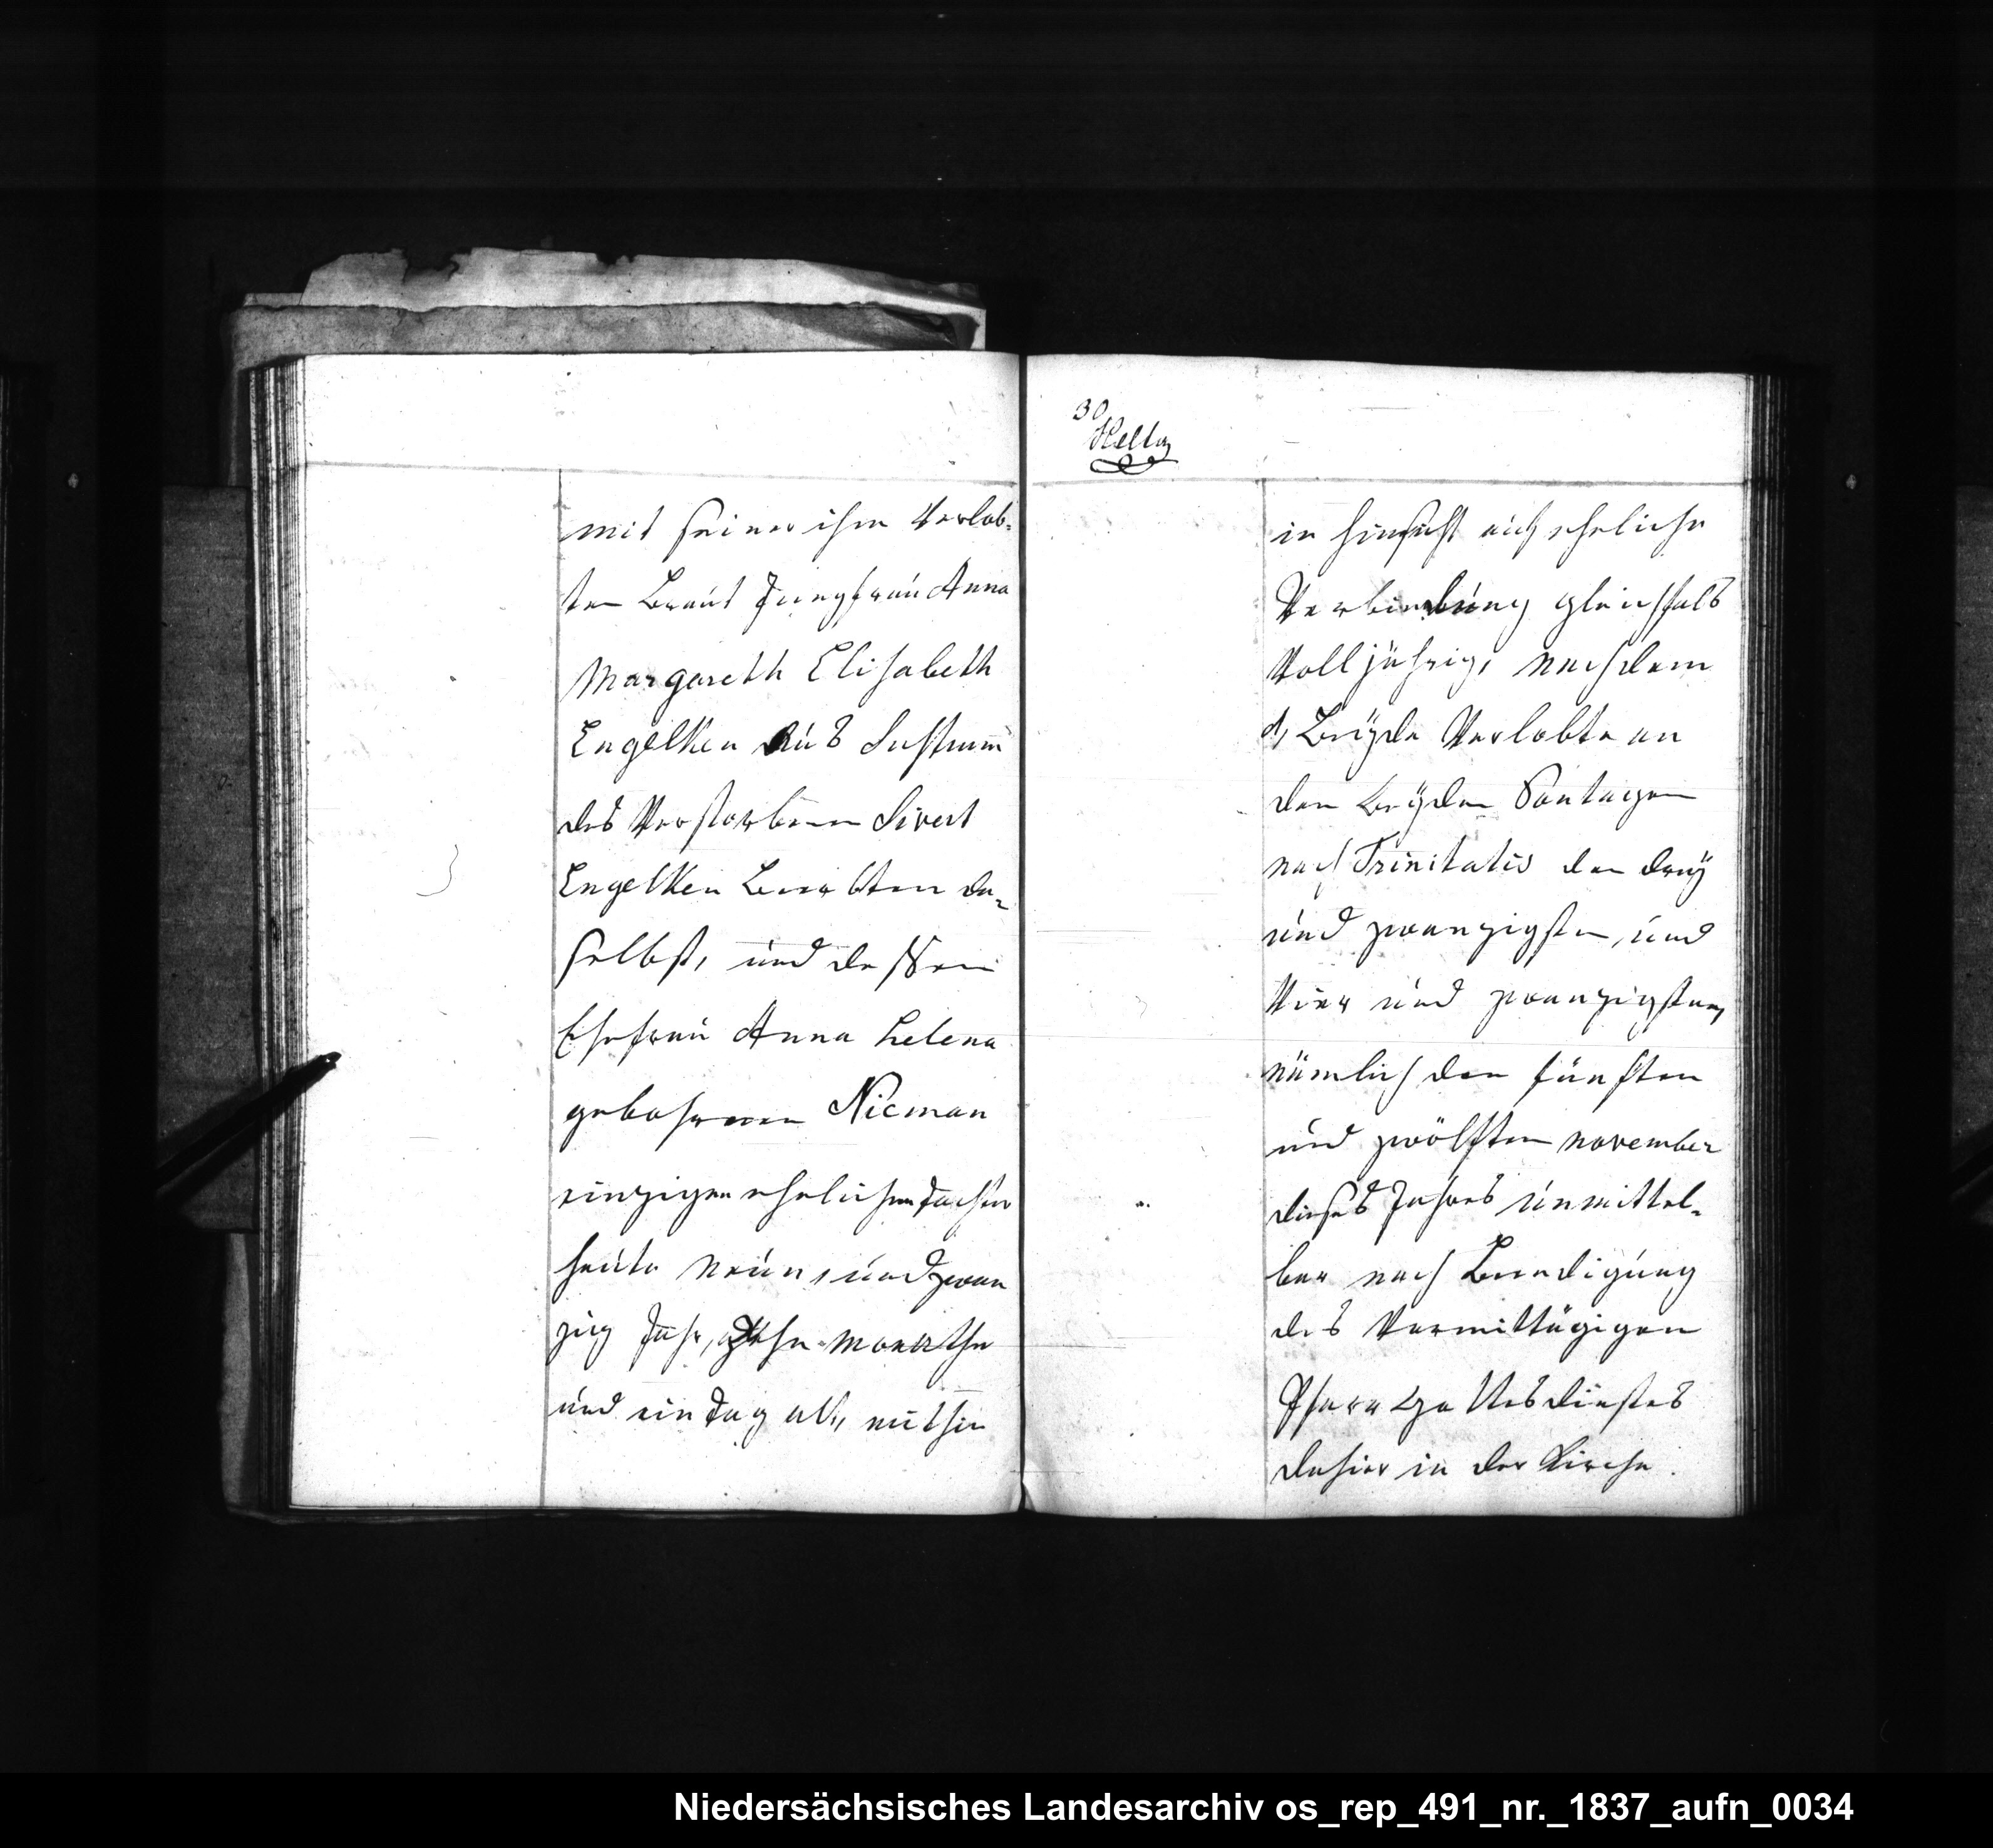 mit seiner ihm Verlob-
ten Braut Jungfrau Anna
Margareth Elisabeth
Engelken aus Sustrum
des Verstorbenen Sivert
Engelken Beerbten da-
selbst, und dessen
Ehefrau Anna Helena
gebohrnen Nieman
einzigen ehelichen Tochter
heute neun, und zwan
zig Jahr, zehn Monathe
und ein Tag alt, mithin
30
in hinsicht auf eheliche
Verbindung gleichfals
Volljährig, nachdem
Beÿde Verlobte an
den beÿden Sontagen
nach Trinitatis den dreÿ
und zwanzigsten, und
Vier und zwanzigsten,
nämlich den fünften
und zwölften november
dieses Jahres unmittel-
bar nach Beendigung
des Vormittägigen
Pfarr Gottesdiestes
dahier in der Kirche.
Niedersächsisches Landesarchiv os_rep_491_nr._1837_aufn_0034